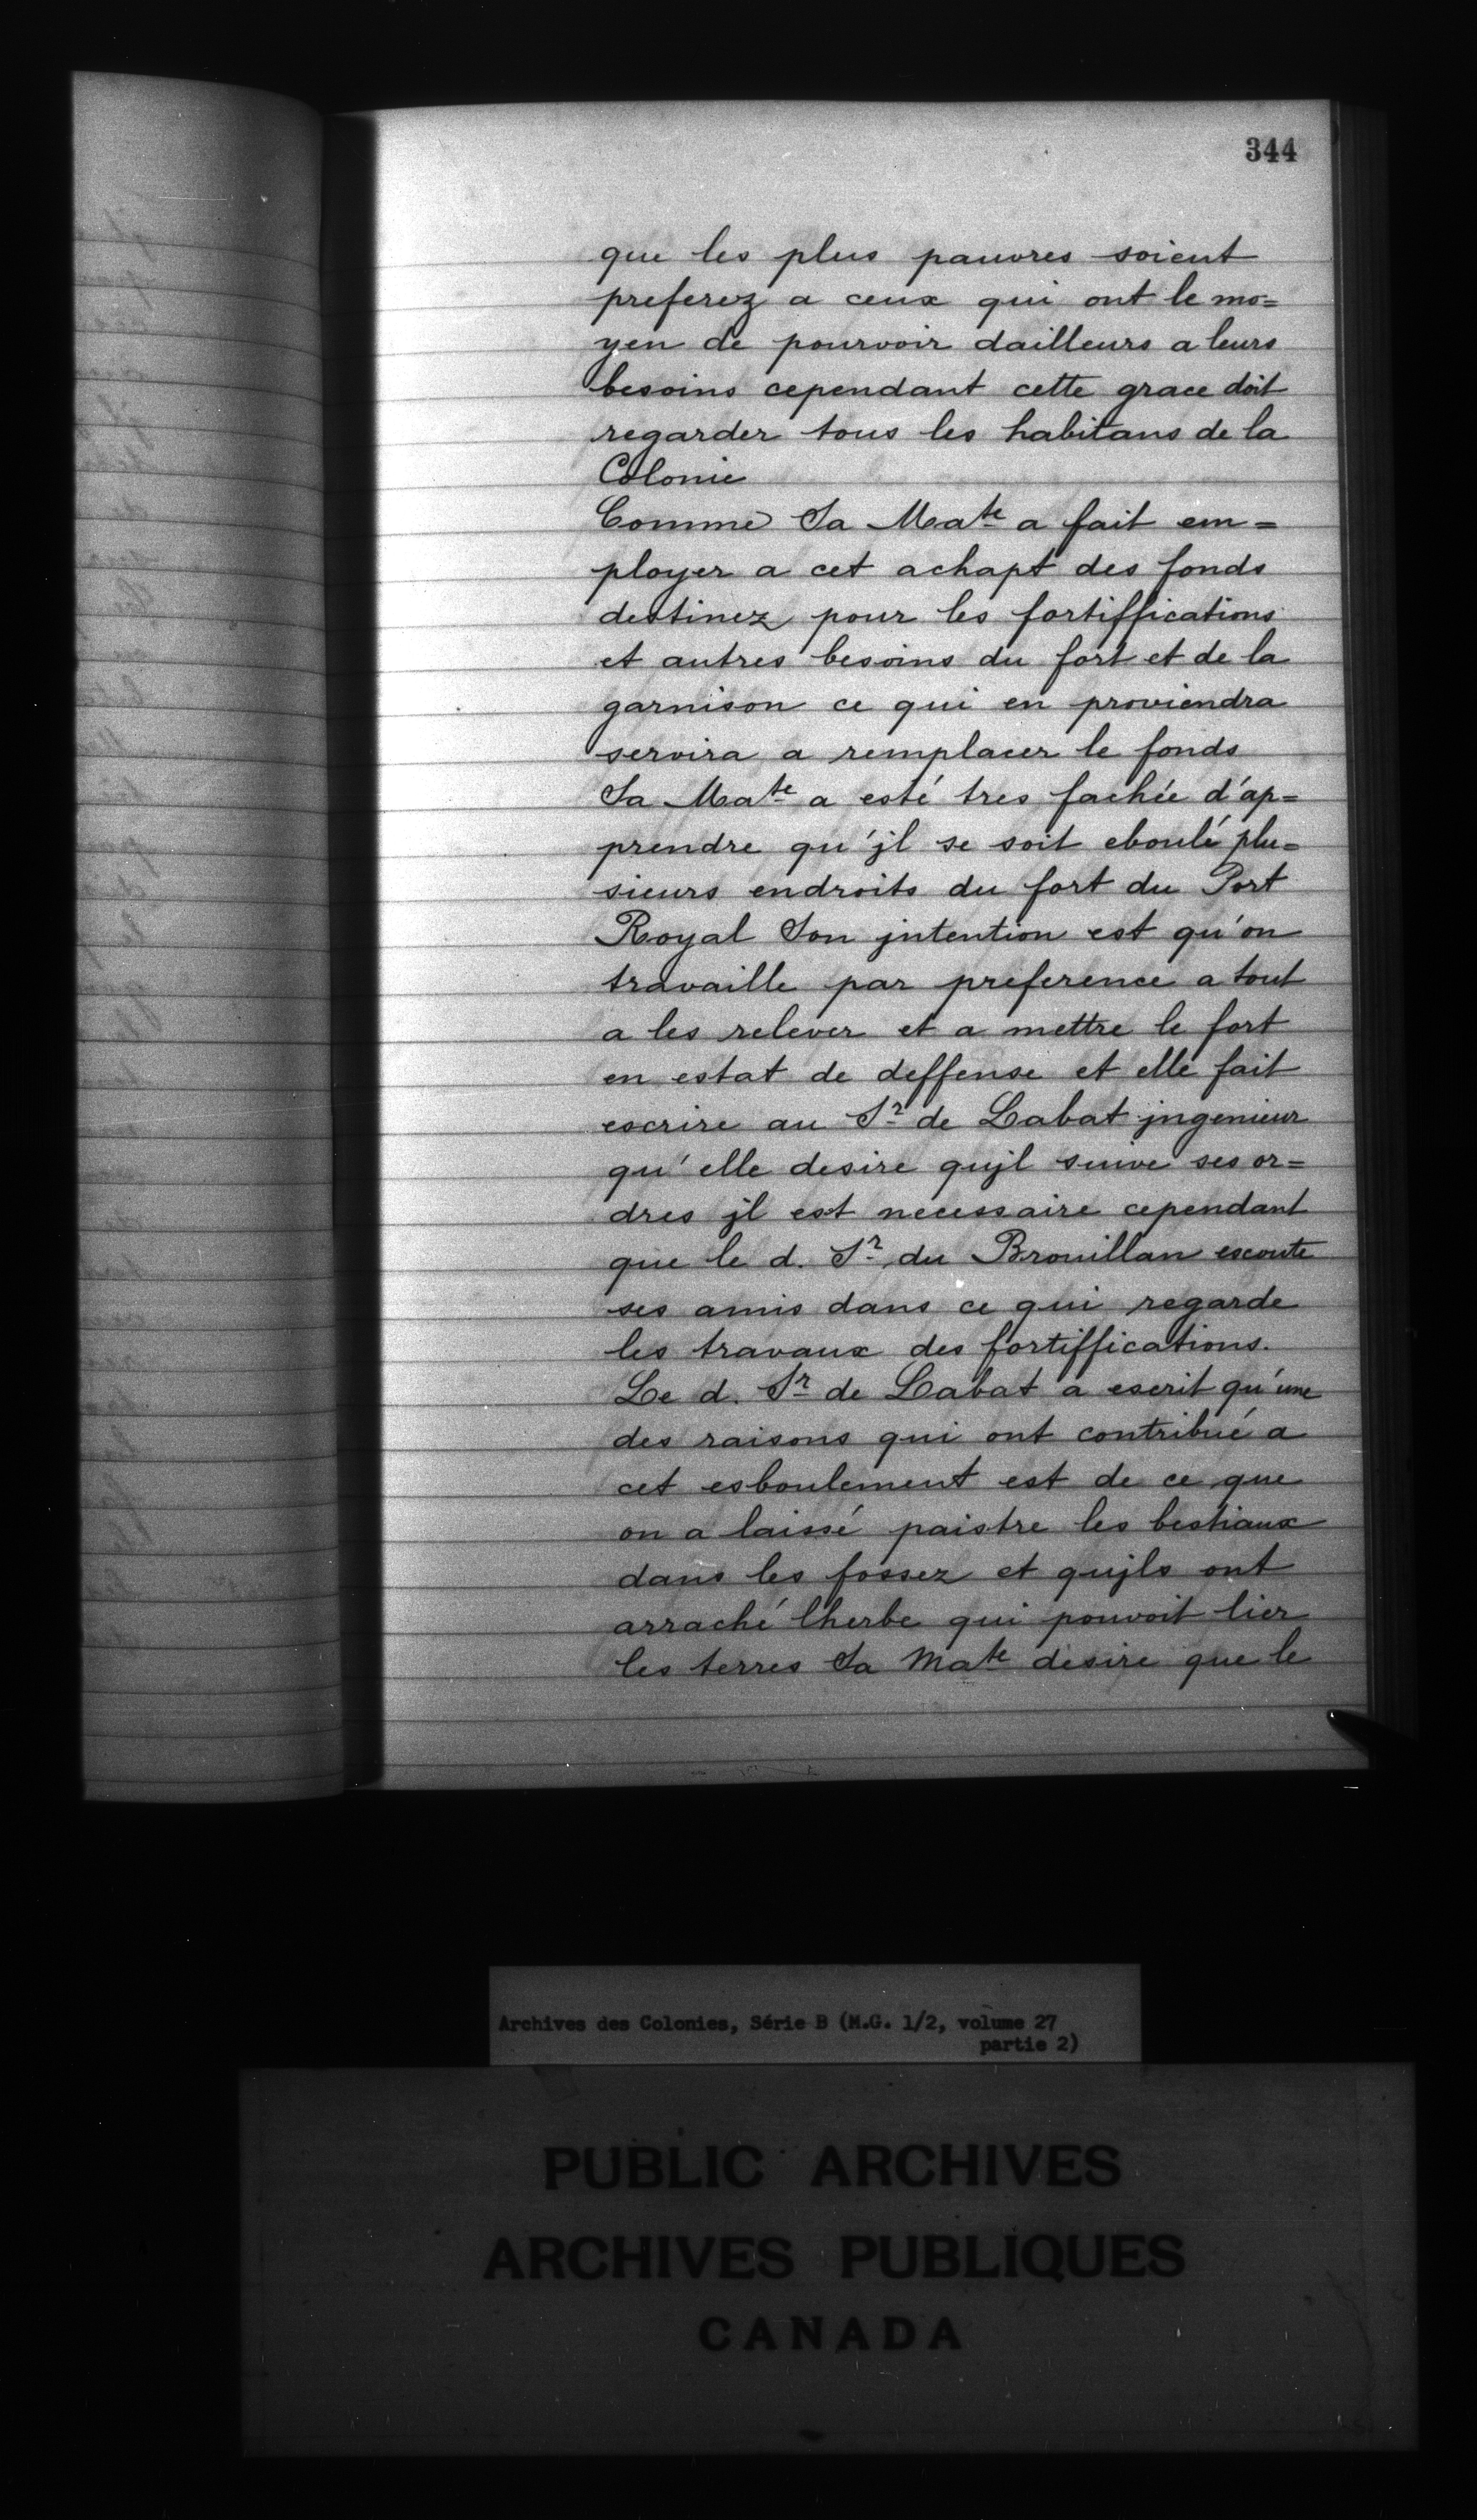 344
que les plus pauvres soient
preferez a ceux qui ont le mo=
yen de pourvoir dailleurs a leurs
besoins cependant cette grace doit
regarder tous les habitans de la
Colonie
Comme Sa Mate a fait em=
ployer a cet achapt des fonds
destinez pour les fortiffications
et autres besoins du fort et de la
garnison ce qui en proviendra
servira a remplacer le fonds
Sa Mate a esté tres fachée d'ap=
prendre qu'jl se soit eboulé plu=
sieurs endroits du fort du Port
Royal Son jntention est qu'on
travaille par preference a tout
a les relever et a mettre le fort
en estat de deffense et elle fait
escrire au Sr de Labat jngenieur
qu'elle desire qujl suive ses or=
dres jl est necessaire cependant
que le d. Sr du Brouillan escoute
ses amis dans ce qui regarde
les travaux des fortiffications.
Le d. Sr de Labat a escrit qu'une
des raisons qui ont contribué a
cet esboulement est de ce que
on a laissé paistre les bestiaux
dans les fossez et qujls ont
arraché lherbe qui pouvoit lier
les terres Sa Mate desire que le
Archives des Colonies, Série B (M.G. 1/2, volume 27
partie 2)
PUBLIC ARCHIVES
ARCHIVES PUBLIQUES
CANADA